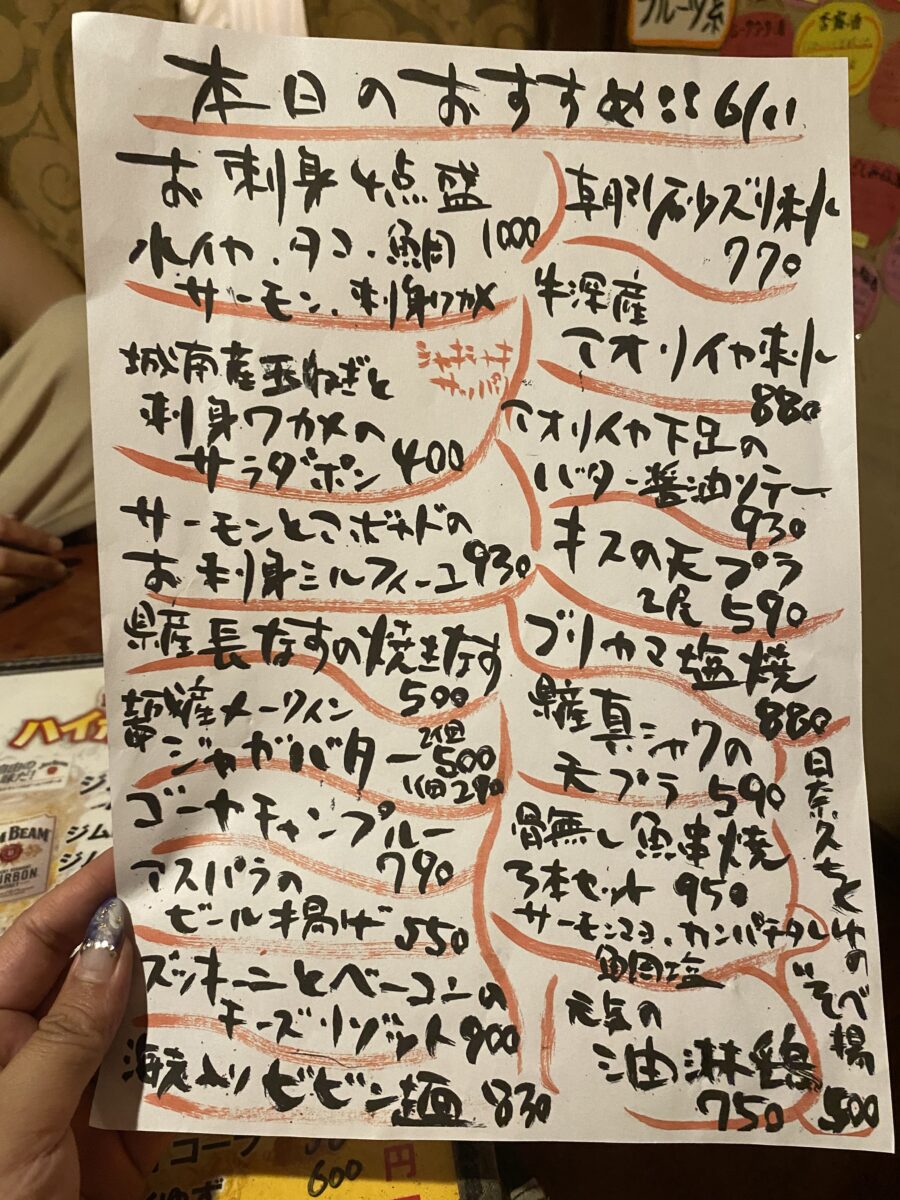 本日のおすすめ:: 6/11
お刺身4点盛
水イカ.タコ.鯛 1000
サーモン.刺身ワカメ
城南産玉ねぎと
刺身ワカメの
サラダポン 400
サーモンとアボカドの
お刺身ミルフィーユ 930
県産長なすの焼きなす
500
産メークイン
ジャガバター 2個 500
1個 290
ゴーヤチャンプルー
790
アスパラの
ビール揚げ 550
ズッキーニとベーコンの
チーズリゾット 900
海老入りビビン麺 830
朝引砂ズリ刺し
770
牛深産
アオリイカ刺し
880
アオリイカ下足の
バター醤油ソテー
930
キスの天プラ
2尾 590
ブリカマ塩焼
880
県産真シャクの
天プラ 590
骨無し魚串焼
3本セット 950
サーモンマヨ.カンパチタレ
鯛塩
元気の
油淋鶏
750
日奈久ちくわの
いそべ揚
500
フルーツ系
ハイボ
BEAM
BOURBON
ジム
ジム
コーラ
600円